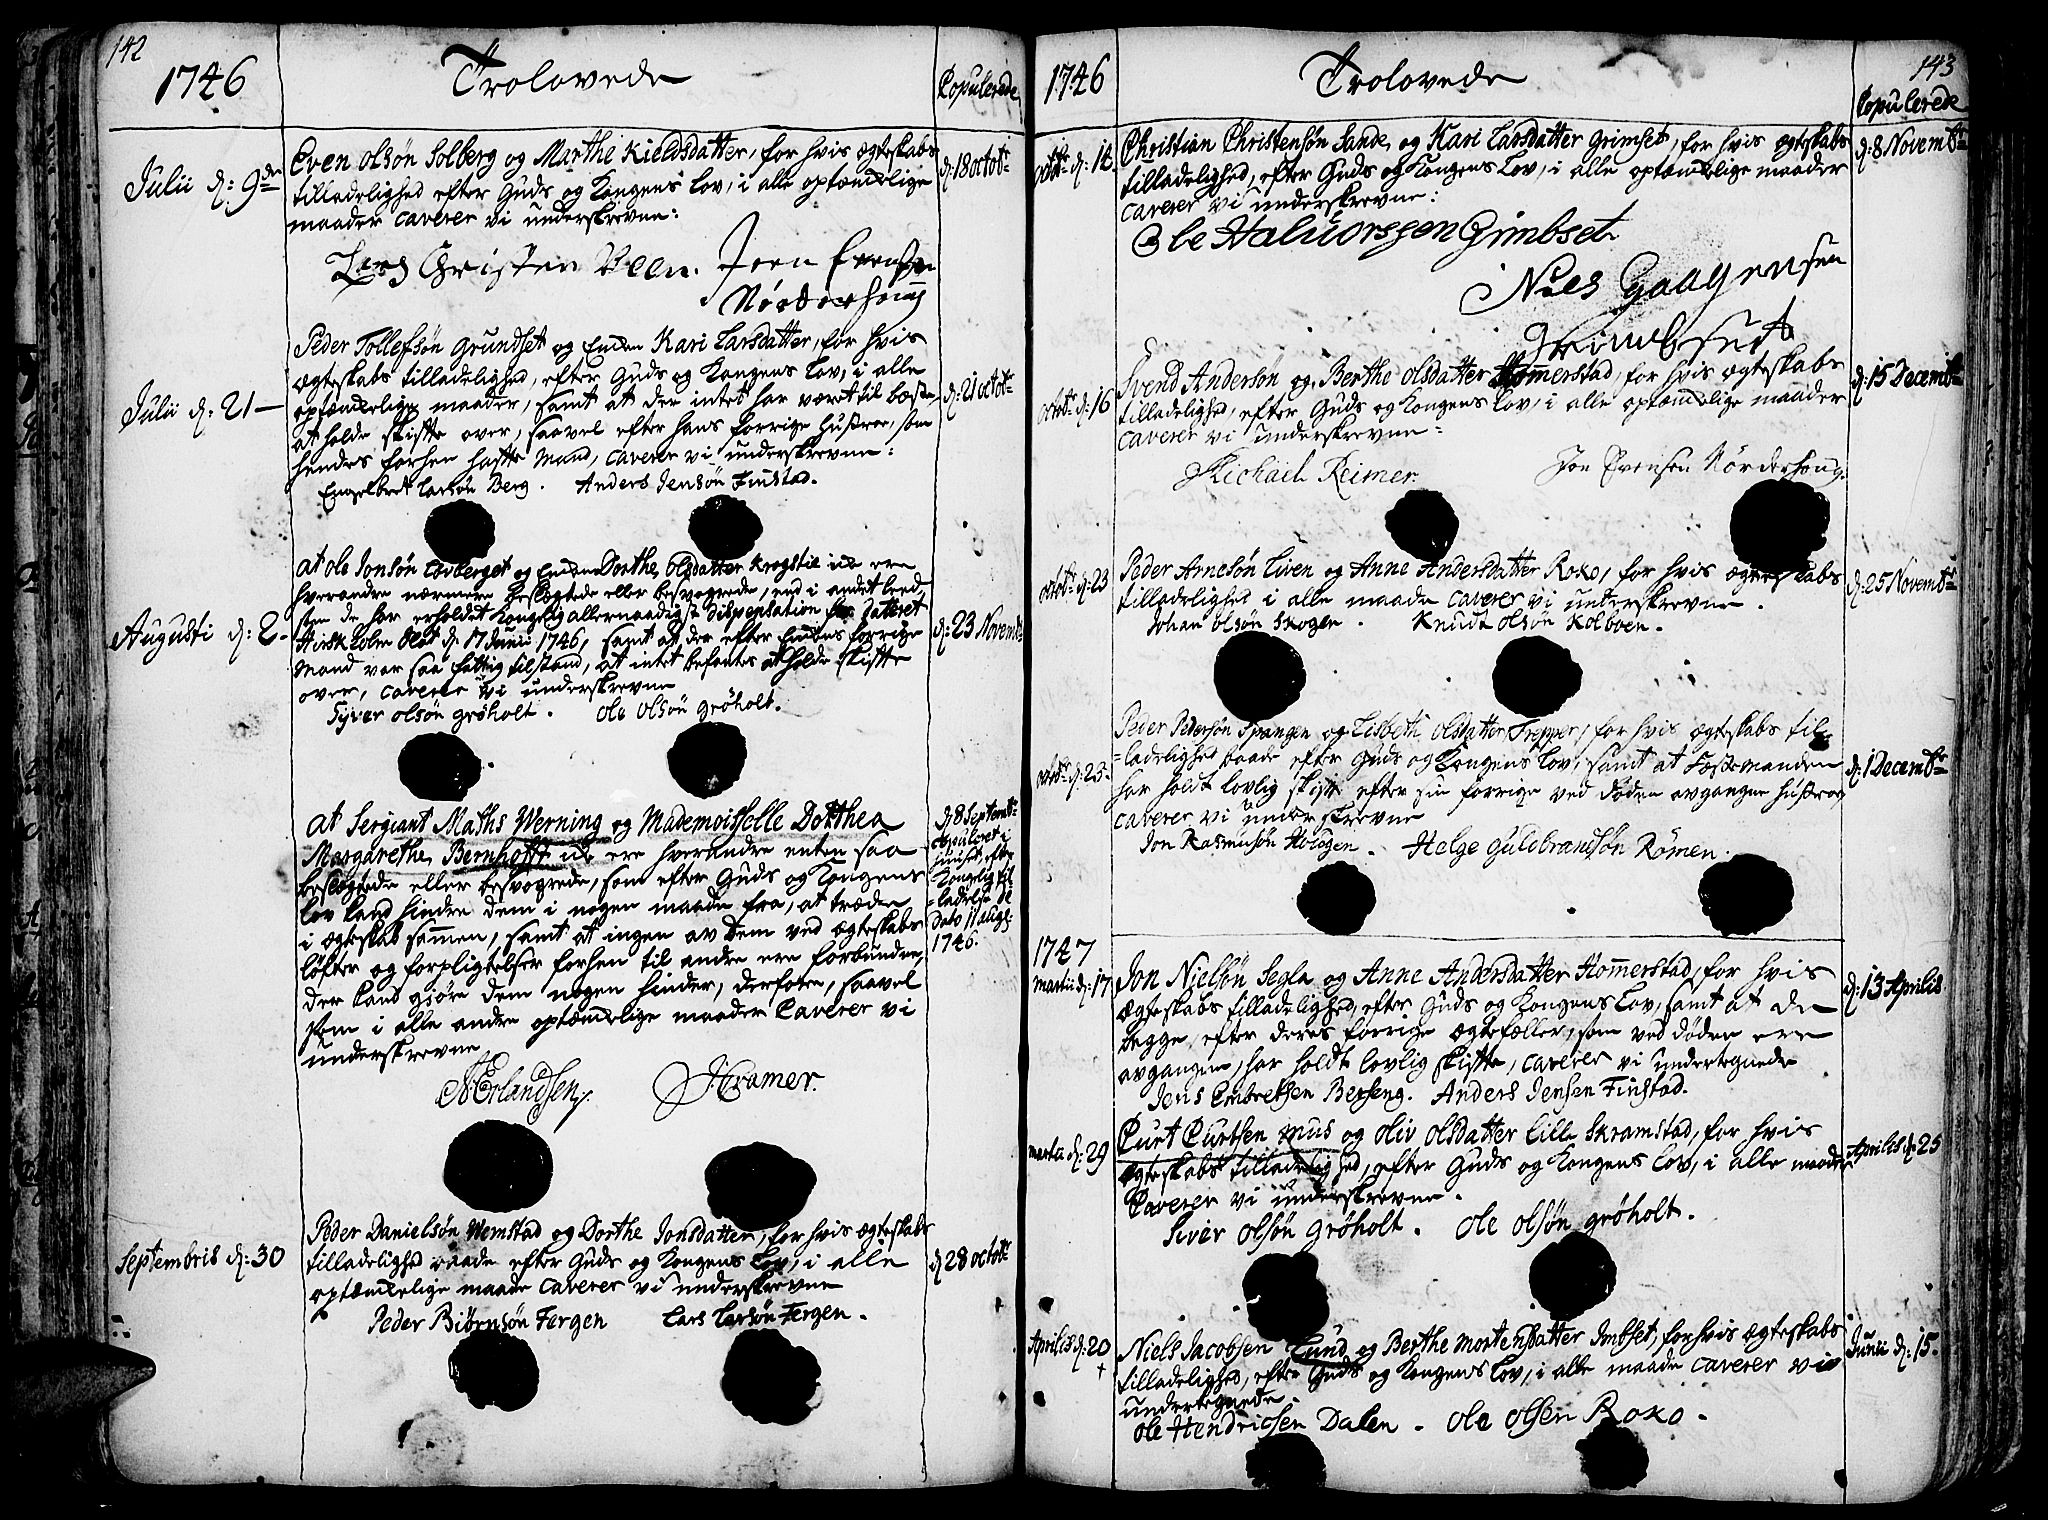 142
1746
Trolovede
Copulerede
Julii d: 9de
Even Olsøn Solberg og Marthe Kieldsdatter, for hvis ægteskabs
tilladelighed efter Guds og Kongens Lov, i alle optænkelige
maader caverer vi underskrevne:
d: 18 octobr
Lars Christen Veen. Joen Evensen
Nørderhoug
Julii d: 21
Peder Tollefsøn Grundset og Enken Kari Larsdatter, for hvis
ægteskabs tilladelighed, efter Guds og Kongens Lov, i alle
optænkelige maader, samt at der intet har været til beste
at holde skifte over, saavel efter hans forrige Hustroe, som
hendes forhen hafte Mand, caverer vi underskrevne:
d: 21 octobr
Engelbret Larsøn Berg. Anders Jensøn Finstad.
Augusti d: 2
at Ole Jonsøn Løvberget og Enken Dorthe Olsdatter Krogstie ick ere
hverandre nærmere beslægtede eller besvogrede, end i andet leed,
som de har erholdet Kongelig allernaadigst Dispensation for Datteret
Hirskholm Slot d: 17 Junii 1746, samt at der efter Enkens forrige
Mand var saa fattig tilstand, at intet befantes at holde skifte
over, caverer vi underskrevne
d: 23 Novembr
Syver Olsøn Grøholt. Ole Olsøn Grøholt.
at Sergiant Maths Werning og Mademoisselle Dotthea
Margarethe Bernhofft ick ere hverandre enten saa
beslægtede eller besvogrede, som efter Guds og Kongens
Lov kand hindre dem i nogen maade fra, at træde
i ægteskab sammen, samt at ingen av dem ved ægteskabs
løfter og forpligtelser forhen til andre ere forbundne,
der kand giøre dem nogen hinder, derfore, saavel
som i alle andre optænkelige maader Caverer vi
underskrevne
d: 8 Septembr
Copuleret i
huuset, efter
Kongelig til-
ladelse de
Dato 11 aug:
1746.
N Erlandsen H Cramer.
Septembris d: 30
Peder Danielsøn Wemstad og Dorthe Jonsdatter, for hvis ægteskabs
tilladelighed baade efter Guds og Kongens Lov, i alle
optænkelige maade caverer vi underskrevne
d: 28 octobr
Peder Biørnsøn Fergen Lars Larsøn Fergen.
143
1746
Trolovede
Copulerede
octobr d: 12
Christian Christensøn Sande, og Kari Larsdatter Grimset, for hvis ægteskabs
tilladelighed, efter Guds og Kongens Lov, i alle optænkelige maader
caverer vi underskrevne:
d: 8 Novembr
Ole Haluorssen Grimbset
Niels Gaagensen
Grimbset
octobr d: 16
Svend Andersøn og Berthe Olsdatter Homerstad, for hvis ægteskabs
tilladelighed, efter Guds og Kongens Lov, i alle optænkelige maader
caverer vi underskrevne:
d: 15 Decembr
Michael Reimer. Jon Evensen Nørderhoug.
octobr d: 23
Peder Arnesøn Lien og Anne Andersdatter Roko, for hvis ægteskabs
tilladelighed i alle maade caverer vi underskrevne.
d: 25 Novembr
Johan Olsøn Skogen. Knudt Olsøn Kolboen.
octobr d: 23
Peder Pedersøn Spangen og Lisbeth Olsdatter Trepper, for hvis ægteskabs til-
ladelighed baade efter Guds og Kongens Lov, samt at Fæstemanden
har holdt lovlig skifte efter sin forrige ved døden avgangne hustroe
caverer vi underskrevne
d: 1 Decembr
Jon Rasmusøn Holagen. Helge Guldbrandsøn Rømen.
1747
martii d: 17
Jon Nielsøn Segla og Anne Andersdatter Homerstad, for hvis
ægteskabs tilladelighed, efter Guds og Kongens Lov, samt at de
begge, efter deres forrige ægtefæller, som ved døden ere
avgangne, har holdt lovlig skifte, caverer vi undertegnede
d: 13 Aprilis
Jens Embretsen Berseng. Anders Jensen Finstad.
martii d: 29
Curt Curtsen Mus og Oliv Olsdatter Lille Skramstad, for hvis
ægteskabs tilladelighed, efter Guds og Kongens Lov, i alle maader
Caverer vi underskrevne.
Aprilis d: 25
Siver Olsøn Grøholt. Ole Olsøn Grøholt.
Aprilis d: 20
Niels Jacobsen Lund og Berthe Mortensdatter Imbset, for hvis ægteskabs
tilladelighed, efter Guds og Kongens Lov, i alle maade caverer vi
undertegnede.
Junii d: 15.
Ole Hendricsen Dalen. Ole Olsen Roko.